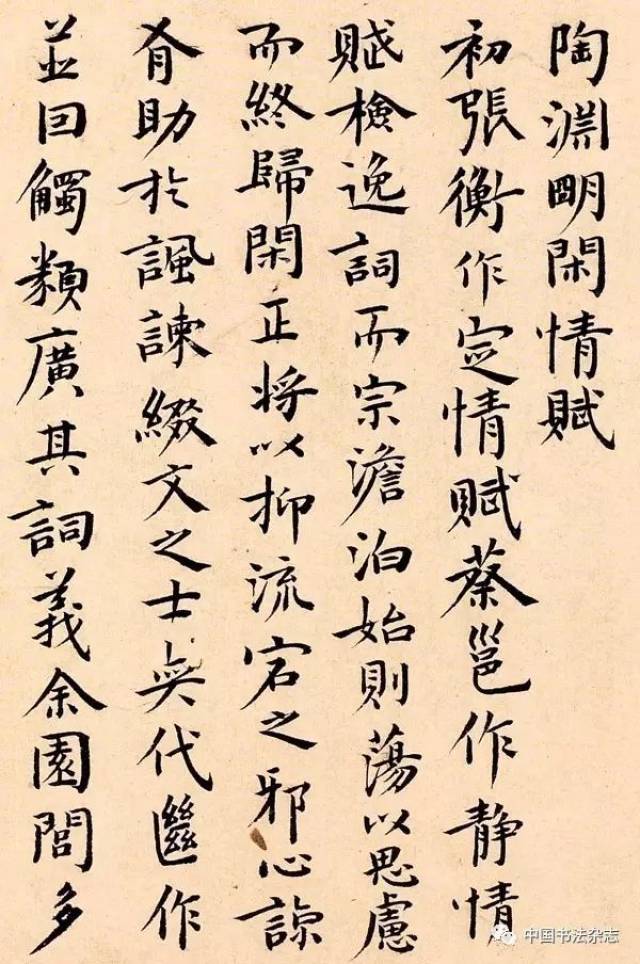 陶淵明閑情賦
初張衡作定情賦蔡邕作靜情
賦檢逸詞而宗澹泊始則蕩以思慮
而終歸閑正将以抑流宕之邪心諒
有助於諷諫綴文之士奕代繼作
並因觸類廣其詞義余園閭多
中国书法杂志